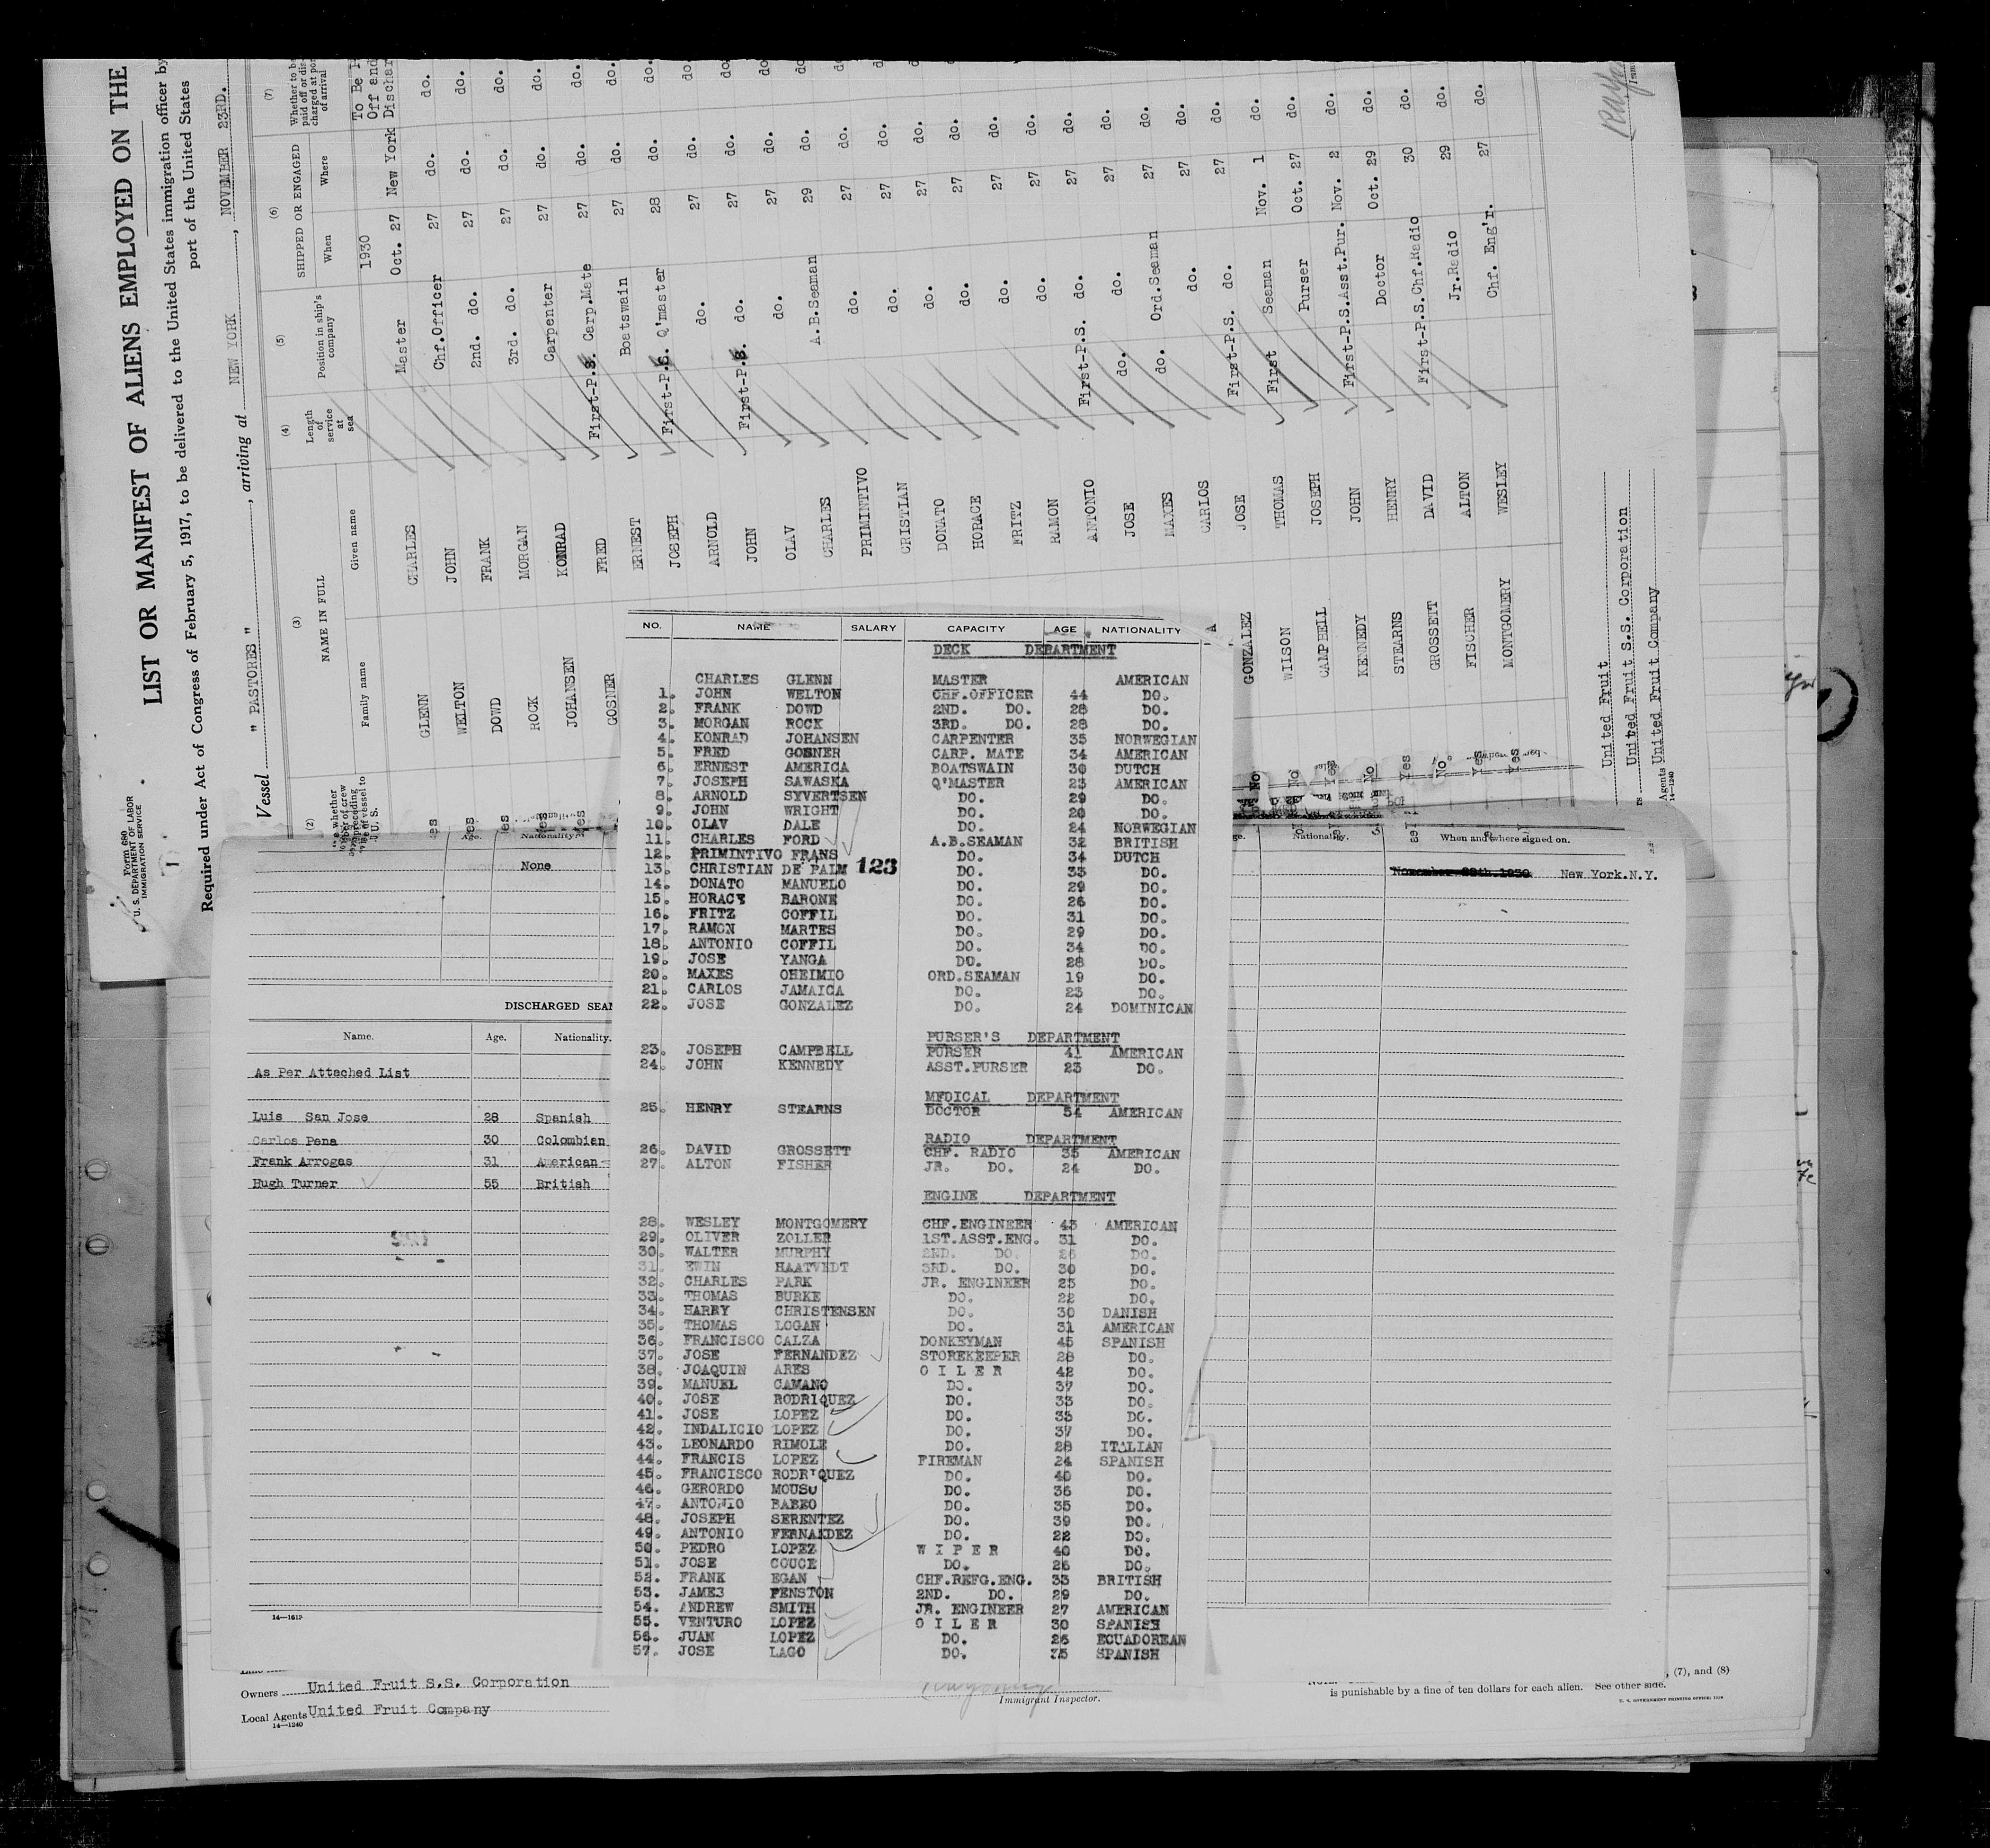 Form 680
U. S. DEPARTMENT OF LABOR
IMMIGRATION SERVICE
LIST OR MANIFEST OF ALIENS EMPLOYED ON THE
Required under Act of Congress of February 5, 1917, to be delivered to the United States immigration officer by
port of the United States
Vessel " PASTORES " , arriving at NEW YORK , NOVEMBER 23RD.
(2) (3) (4) (5) (6) (7)
NAME IN FULL
Family name Given name
Length of service at sea
Position in ship's company
SHIPPED OR ENGAGED
When Where
Whether to be paid off or discharged at port of arrival
1930 To Be
Off and
GLENN CHARLES Master Oct. 27 New York Dischar
WELTON JOHN Chf.Officer 27 do. do.
DOWD FRANK 2nd. do. 27 do. do.
ROCK MORGAN 3rd. do. 27 do. do.
JOHANSEN KONRAD Carpenter 27 do. do.
GOSNER FRED First-P.S. Carp.Mate 27 do. do.
ERNEST Boatswain 27 do. do.
JOSEPH First-P.S. Q'master 28 do. do.
ARNOLD do. 27 do. do.
JOHN First-P.S. do. 27 do. do.
OLAV do. 27 do. do.
CHARLES A.B.Seaman 29 do. do.
PRIMINTIVO do. 27 do.
CRISTIAN do. 27 do.
DONATO do. 27 do.
HORACE do. 27 do.
FRITZ do. 27 do.
RAMON do. 27 do.
ANTONIO First-P.S. do. 27 do.
JOSE do. do. 27 do.
MAXES do. Ord.Seaman 27 do.
CARLOS do. 27 do.
GONZALEZ JOSE First-P.S. do. 27 do.
WILSON THOMAS First Seaman Nov. 1 do.
CAMPBELL JOSEPH Purser Oct. 27 do.
KENNEDY JOHN First-P.S.Asst.Pur. Nov. 2 do.
STEARNS HENRY Doctor Oct. 29 do.
GROSSETT DAVID First-P.S.Chf.Radio 30 do.
FISCHER ALTON Jr.Radio 29 do.
MONTGOMERY WESLEY Chf. Eng'r. 27 do.
United Fruit
United Fruit S.S. Corporation
Agents United Fruit Company
14-1240
NO. NAME SALARY CAPACITY AGE NATIONALITY
DECK DEPARTMENT
CHARLES GLENN MASTER AMERICAN
1. JOHN WELTON CHF.OFFICER 44 DO.
2. FRANK DOWD 2ND. DO. 28 DO.
3. MORGAN ROCK 3RD. DO. 28 DO.
4. KONRAD JOHANSEN CARPENTER 35 NORWEGIAN
5. FRED GOSNER CARP. MATE 34 AMERICAN
6. ERNEST AMERICA BOATSWAIN 30 DUTCH
7. JOSEPH SAWASKA Q'MASTER 23 AMERICAN
8. ARNOLD SYVERTSEN DO. 29 DO.
9. JOHN WRIGHT DO. 20 DO.
10. OLAV DALE DO. 24 NORWEGIAN
11. CHARLES FORD A.B.SEAMAN 32 BRITISH
12. PRIMINTIVO FRANS DO. 34 DUTCH
13. CHRISTIAN DE PALM 123 DO. 33 DO.
14. DONATO MANUELO DO. 29 DO.
15. HORACE BARONE DO. 26 DO.
16. FRITZ COFFIL DO. 31 DO.
17. RAMON MARTES DO. 29 DO.
18. ANTONIO COFFIL DO. 34 DO.
19. JOSE YANGA DO. 28 DO.
20. MAXES OHEIMIO ORD.SEAMAN 19 DO.
21. CARLOS JAMAICA DO. 23 DO.
22. JOSE GONZALEZ DO. 24 DOMINICAN
PURSER'S DEPARTMENT
23. JOSEPH CAMPBELL PURSER 41 AMERICAN
24. JOHN KENNEDY ASST.PURSER 23 DO.
MEDICAL DEPARTMENT
25. HENRY STEARNS DOCTOR 54 AMERICAN
RADIO DEPARTMENT
26. DAVID GROSSETT CHF. RADIO 35 AMERICAN
27. ALTON FISHER JR. DO. 24 DO.
ENGINE DEPARTMENT
28. WESLEY MONTGOMERY CHF.ENGINEER 43 AMERICAN
29. OLIVER ZOLLER 1ST.ASST.ENG. 31 DO.
30. WALTER MURPHY 2ND. DO. 26 DO.
31. EWIN HAATVEDT 3RD. DO. 30 DO.
32. CHARLES PARK JR. ENGINEER 23 DO.
33. THOMAS BURKE DO. 22 DO.
34. HARRY CHRISTENSEN DO. 30 DANISH
35. THOMAS LOGAN DO. 31 AMERICAN
36. FRANCISCO CALZA DONKEYMAN 45 SPANISH
37. JOSE FERNANDEZ STOREKEEPER 28 DO.
38. JOAQUIN ARES O I L E R 42 DO.
39. MANUEL CAMANO DO. 37 DO.
40. JOSE RODRIQUEZ DO. 33 DO.
41. JOSE LOPEZ DO. 35 DO.
42. INDALICIO LOPEZ DO. 37 DO.
43. LEONARDO RIMOLE DO. 28 ITALIAN
44. FRANCIS LOPEZ FIREMAN 24 SPANISH
45. FRANCISCO RODRIQUEZ DO. 40 DO.
46. GERORDO MOUSO DO. 36 DO.
47. ANTONIO BABEO DO. 35 DO.
48. JOSEPH SERENTEZ DO. 39 DO.
49. ANTONIO FERNANDEZ DO. 22 DO.
50. PEDRO LOPEZ W I P E R 40 DO.
51. JOSE COUCE DO. 26 DO.
52. FRANK EGAN CHF.REFG.ENG. 33 BRITISH
53. JAMES FENSTON 2ND. DO. 29 DO.
54. ANDREW SMITH JR. ENGINEER 27 AMERICAN
55. VENTURO LOPEZ O I L E R 30 SPANISH
56. JUAN LOPEZ DO. 26 ECUADOREAN
57. JOSE LAGO DO. 35 SPANISH
Age. Nationality
None
DISCHARGED SEA
Name. Age. Nationality.
As Per Attached List
Luis San Jose 28 Spanish
Carlos Pena 30 Colombian
Frank Arrogas 31 American
Hugh Turner 55 British
14-1612
Nationality. When and where signed on.
November 28th.1930 New York.N.Y.
Owners United Fruit S.S. Corporation
Local Agents United Fruit Company
14-1240
Immigrant Inspector.
, (7), and (8)
is punishable by a fine of ten dollars for each alien. See other side.
U. S. GOVERNMENT PRINTING OFFICE